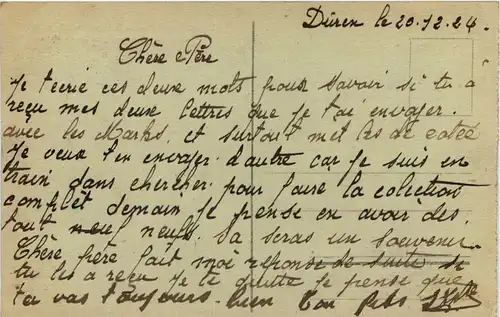 Düren le 20-12-24.
Chère Père
Je t'ecrie ces deuxe mots pour savoir si tu a
reçu mes deuxe lettres que je t'ai envoyer.
avec les Marks. et surtout met les de cotée
Je veux t'en envoyer d'autre car je suis en
train dans chercher pour faire la colection
complet demain je pense en avoir des.
tout neuf neufs. sa seras un souvenir.
Chère père fait moi reponse de suite si
tu les a reçu je te quitte je pense que
tu vas toujours bien Ton fils